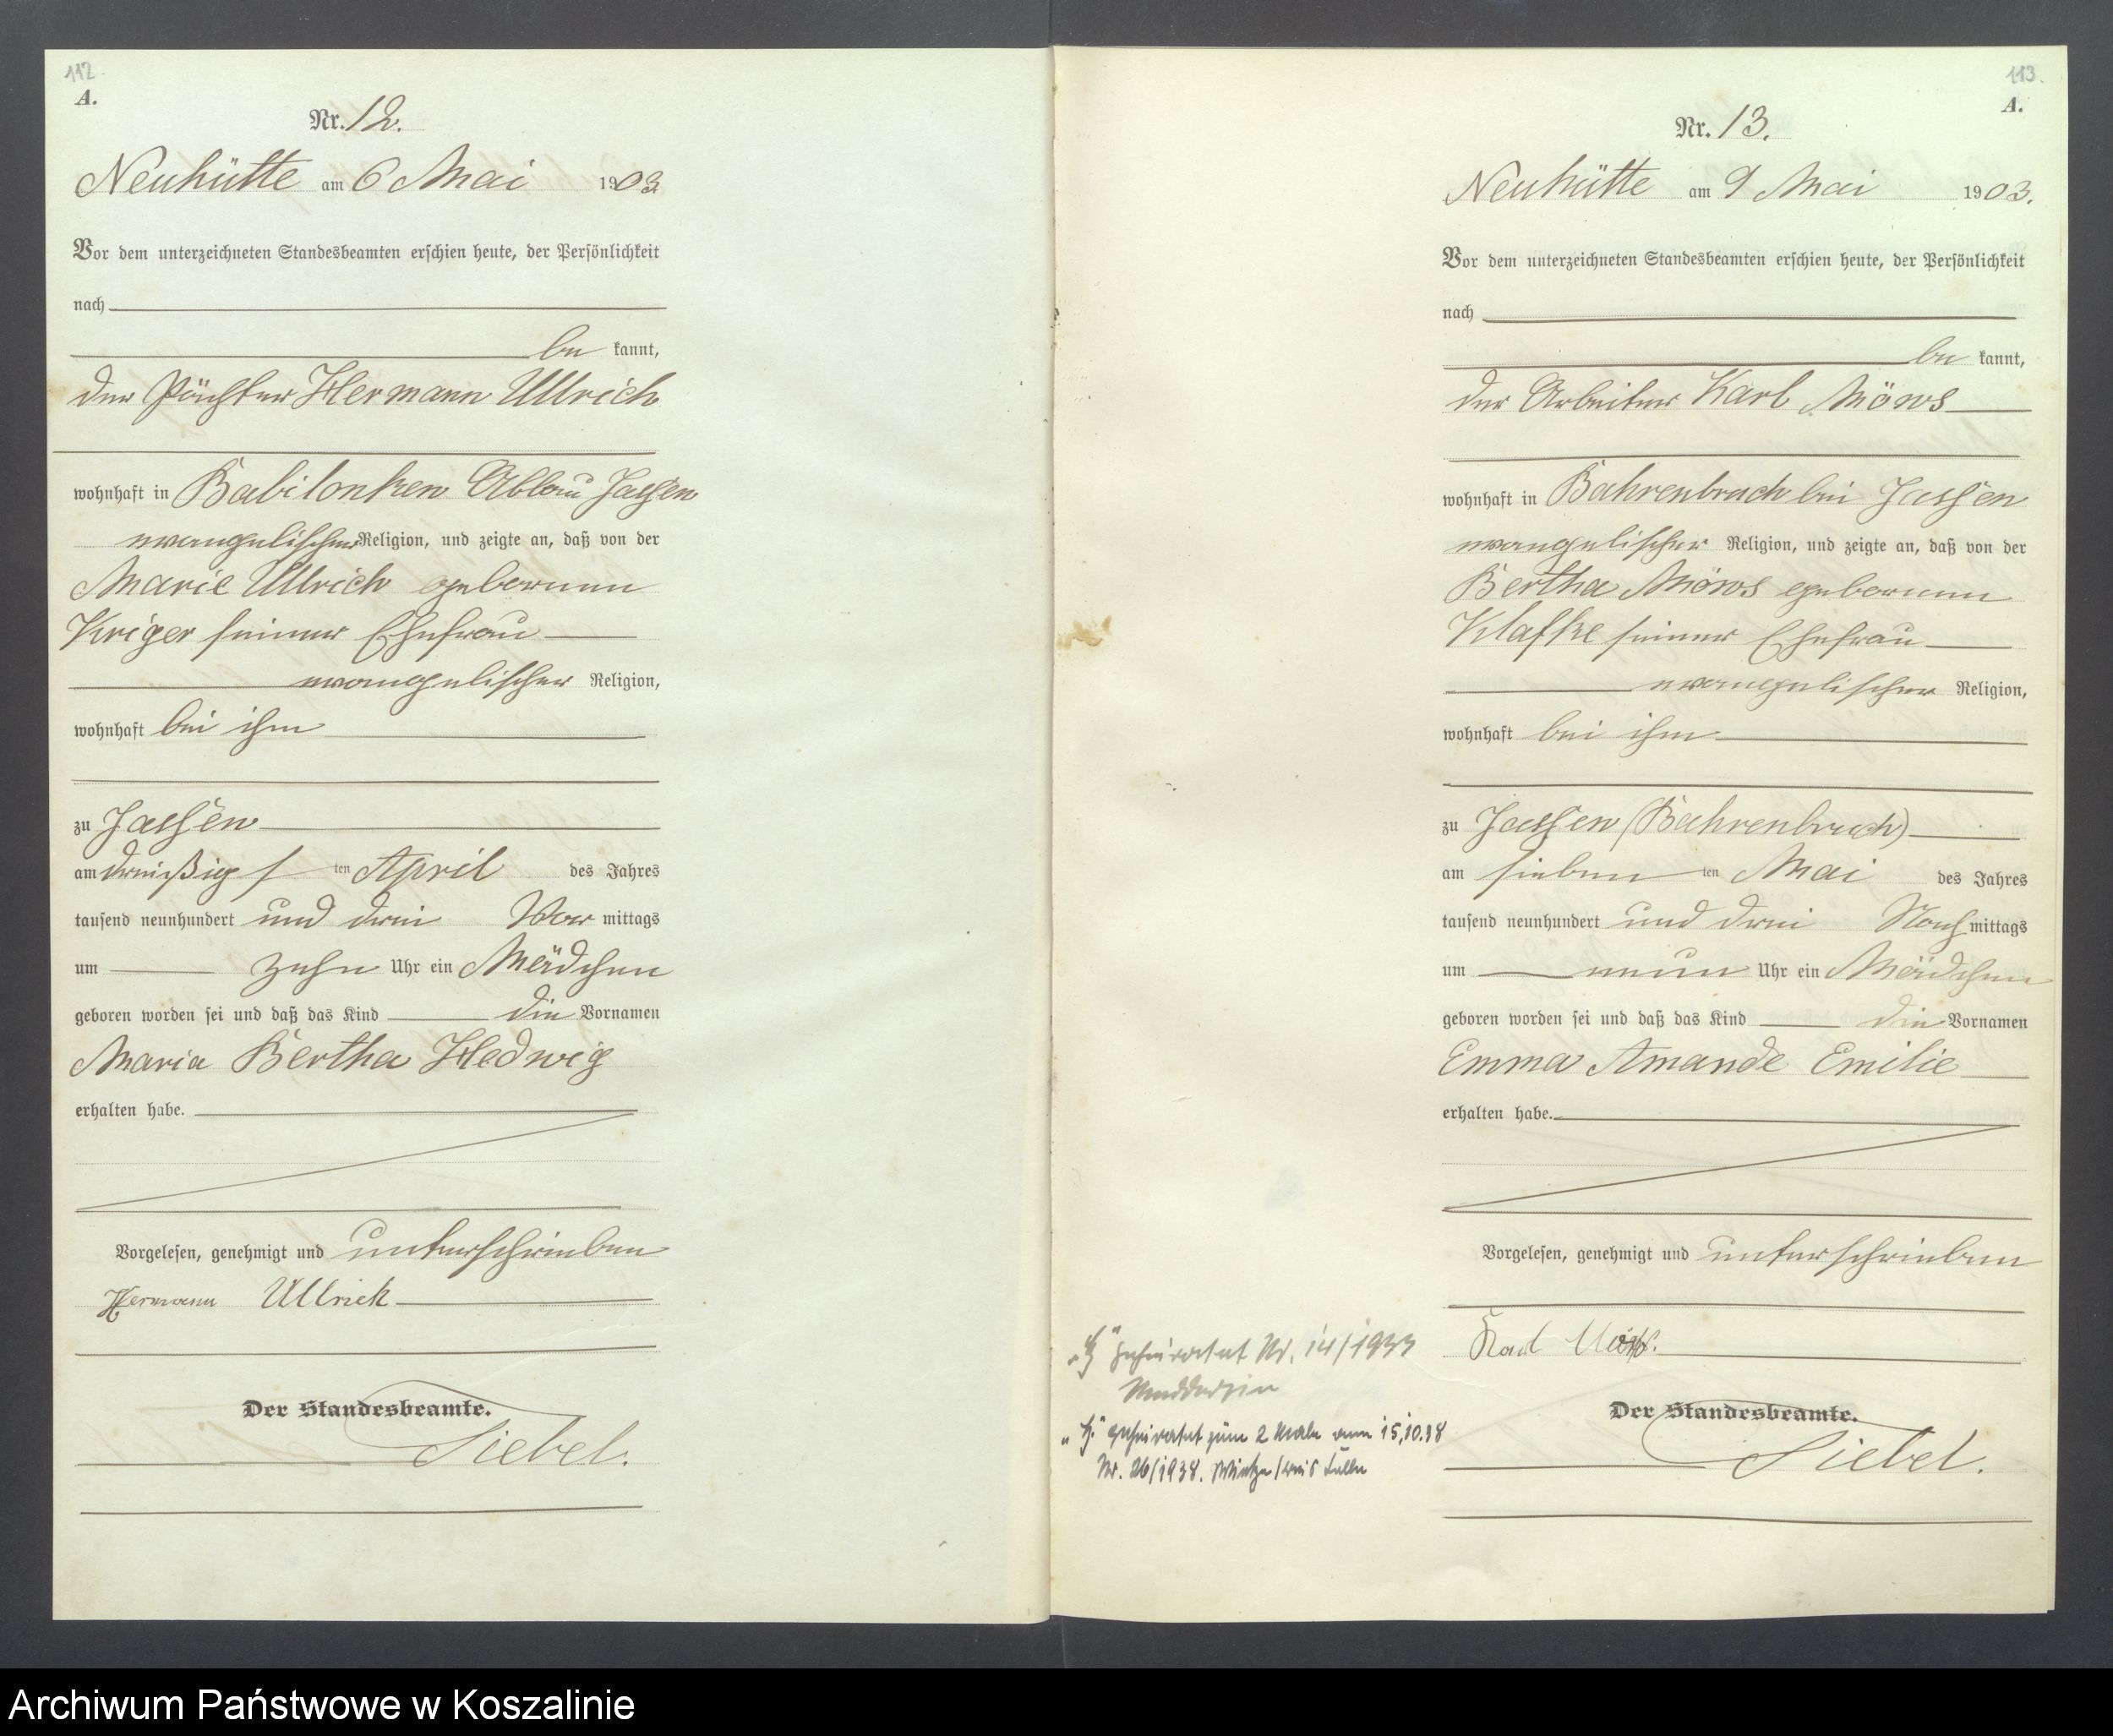 112.
A.
Nr. 12.
Neuhütte am 6 Mai 1903
Vor dem unterzeichneten Standesbeamten erschien heute, der Persönlichkeit
nach
be kannt,
der Pächter Hermann Ullrich
wohnhaft in Babilonken Abbau Jassen
evangelischer Religion, und zeigte an, daß von der
Marie Ullrich geborenen
Kriger seiner Ehefrau
evangelischer Religion,
wohnhaft bei ihm
zu Jassen
am dreißigs ten April des Jahres
tausend neunhundert und drei Vor mittags
um zehn Uhr ein Mädchen
geboren worden sei und daß das Kind die Vornamen
Maria Bertha Hedwig
erhalten habe.
Vorgelesen, genehmigt und unterschrieben
Hermann Ullrich
Der Standesbeamte.
Siebel.
113.
A.
Nr. 13.
Neuhütte am 9 Mai 1903.
Vor dem unterzeichneten Standesbeamten erschien heute, der Persönlichkeit
nach
be kannt,
der Arbeiter Karl Möws
wohnhaft in Bahrenbruch bei Jassen
evangelischer Religion, und zeigte an, daß von der
Bertha Möws geborenen
Klafke seiner Ehefrau
evangelischer Religion,
wohnhaft bei ihm
zu Jassen (Bahrenbruch)
am sieben ten Mai des Jahres
tausend neunhundert und drei Nach mittags
um neun Uhr ein Mädchen
geboren worden sei und daß das Kind die Vornamen
Emma Amande Emilie
erhalten habe.
Vorgelesen, genehmigt und unterschrieben
Karl Möws.
Der Standesbeamte.
Siebel.
geheiratet Nr. 14/1933
geheiratet zum 2 Male am 15.10.38
Nr. 26/1938.
Archiwum Państwowe w Koszalinie